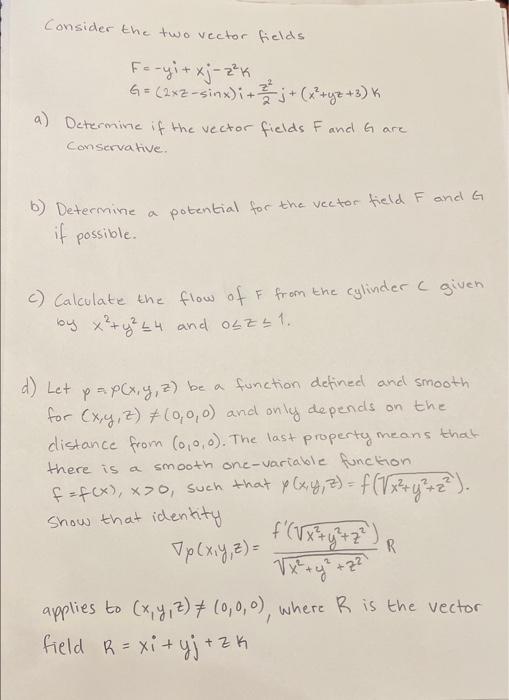 Consider the two vector fields
F = -yi + xj - z²k
G = (2xz - sinx)i + z²/2 j + (x² + yz + 3)k
a) Determine if the vector fields F and G are
conservative.
b) Determine a potential for the vector field F and G
if possible.
c) Calculate the flow of F from the cylinder C given
by x² + y² ≤ 4 and 0 ≤ z ≤ 1.
d) Let p = p(x,y,z) be a function defined and smooth
for (x,y,z) ≠ (0,0,0) and only depends on the
distance from (0,0,0). The last property means that
there is a smooth one-variable function
f = f(x), x>0, such that p(x,y,z) = f(√(x²+y²+z²)).
Show that identity
∇p(x,y,z) = f'(√(x²+y²+z²)) / √(x²+y²+z²) R
applies to (x,y,z) ≠ (0,0,0), where R is the vector
field R = xi + yj + zk